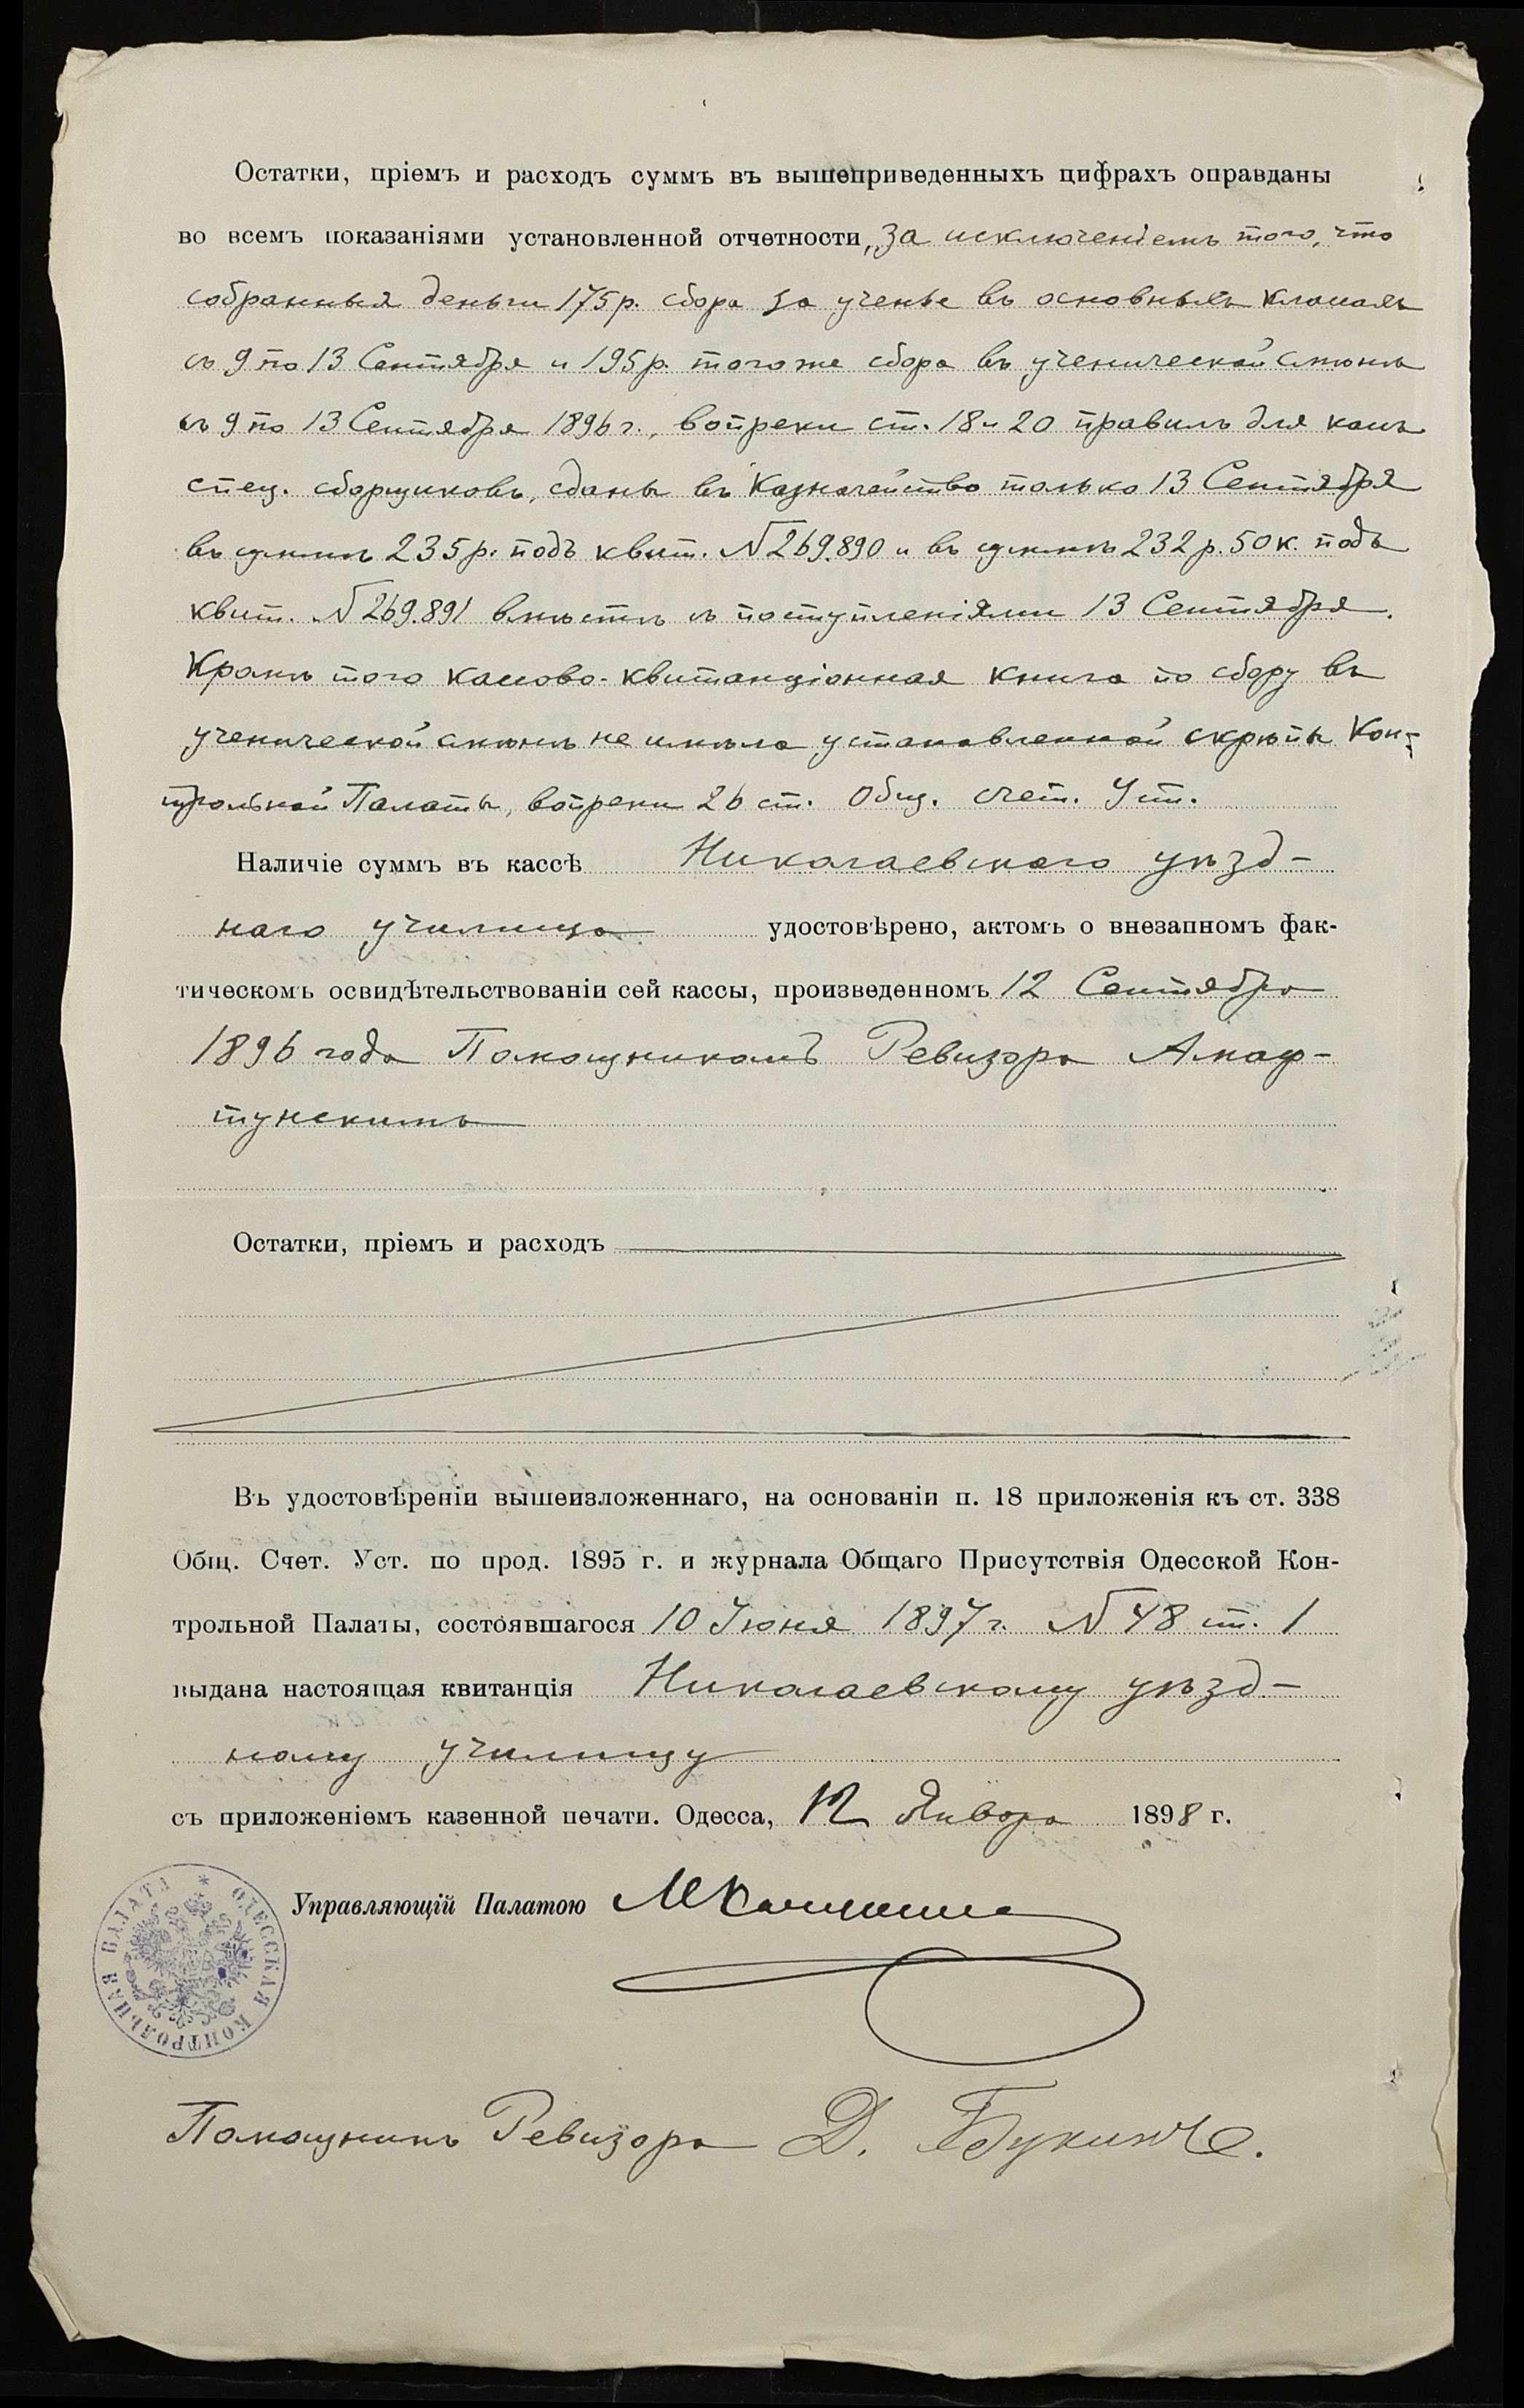 Остатки, пріемъ и расходъ суммъ въ вышеприведенныхъ цифрахъ оправданы
во всемъ показаніями установленной отчетности, за исключеніемъ того, что
собранныя деньги 175 р. сбора за ученье въ основныхъ классахъ
съ 9 по 13 Сентября и 195 р. того же сбора въ ученической
съ 9 по 13 Сентября 1896 г., вопреки ст. 18 и 20 правилъ для кассъ
спец. сборщиковъ, сданы въ Казначейство только 13 Сентября
въ суммѣ 235 р. подъ квит. № 269.890 и въ суммѣ 232 р. 50 к. подъ
квит. № 269.891 вмѣстѣ съ поступленіями 13 Сентября.
Кромѣ того кассово-квитанціонная книга по сбору въ
ученической не имѣла установленной скрѣпы Кон-
трольной Палаты, вопреки 26 ст. Общ. Счет. Уст.
Наличіе суммъ въ кассѣ Николаевскаго уѣзд-
наго училища удостовѣрено, актомъ о внезапномъ фак-
тическомъ освидѣтельствованіи сей кассы, произведенномъ 12 Сентября
1896 года Помощникомъ Ревизора
Остатки, пріемъ и расходъ
Въ удостовѣреніи вышеизложеннаго, на основаніи п. 18 приложенія къ ст. 338
Общ. Счет. Уст. по прод. 1895 г. и журнала Общаго Присутствія Одесской Кон-
трольной Палаты, состоявшагося 10 Іюня 1897 г. № 48 ст. 1
выдана настоящая квитанція Николаевскому уѣзд-
ному училищу
съ приложеніемъ казенной печати. Одесса, 12 Января 1898 г.
Управляющій Палатою
ОДЕССКАЯ КОНТРОЛЬНАЯ ПАЛАТА *
Помощникъ Ревизора Д.